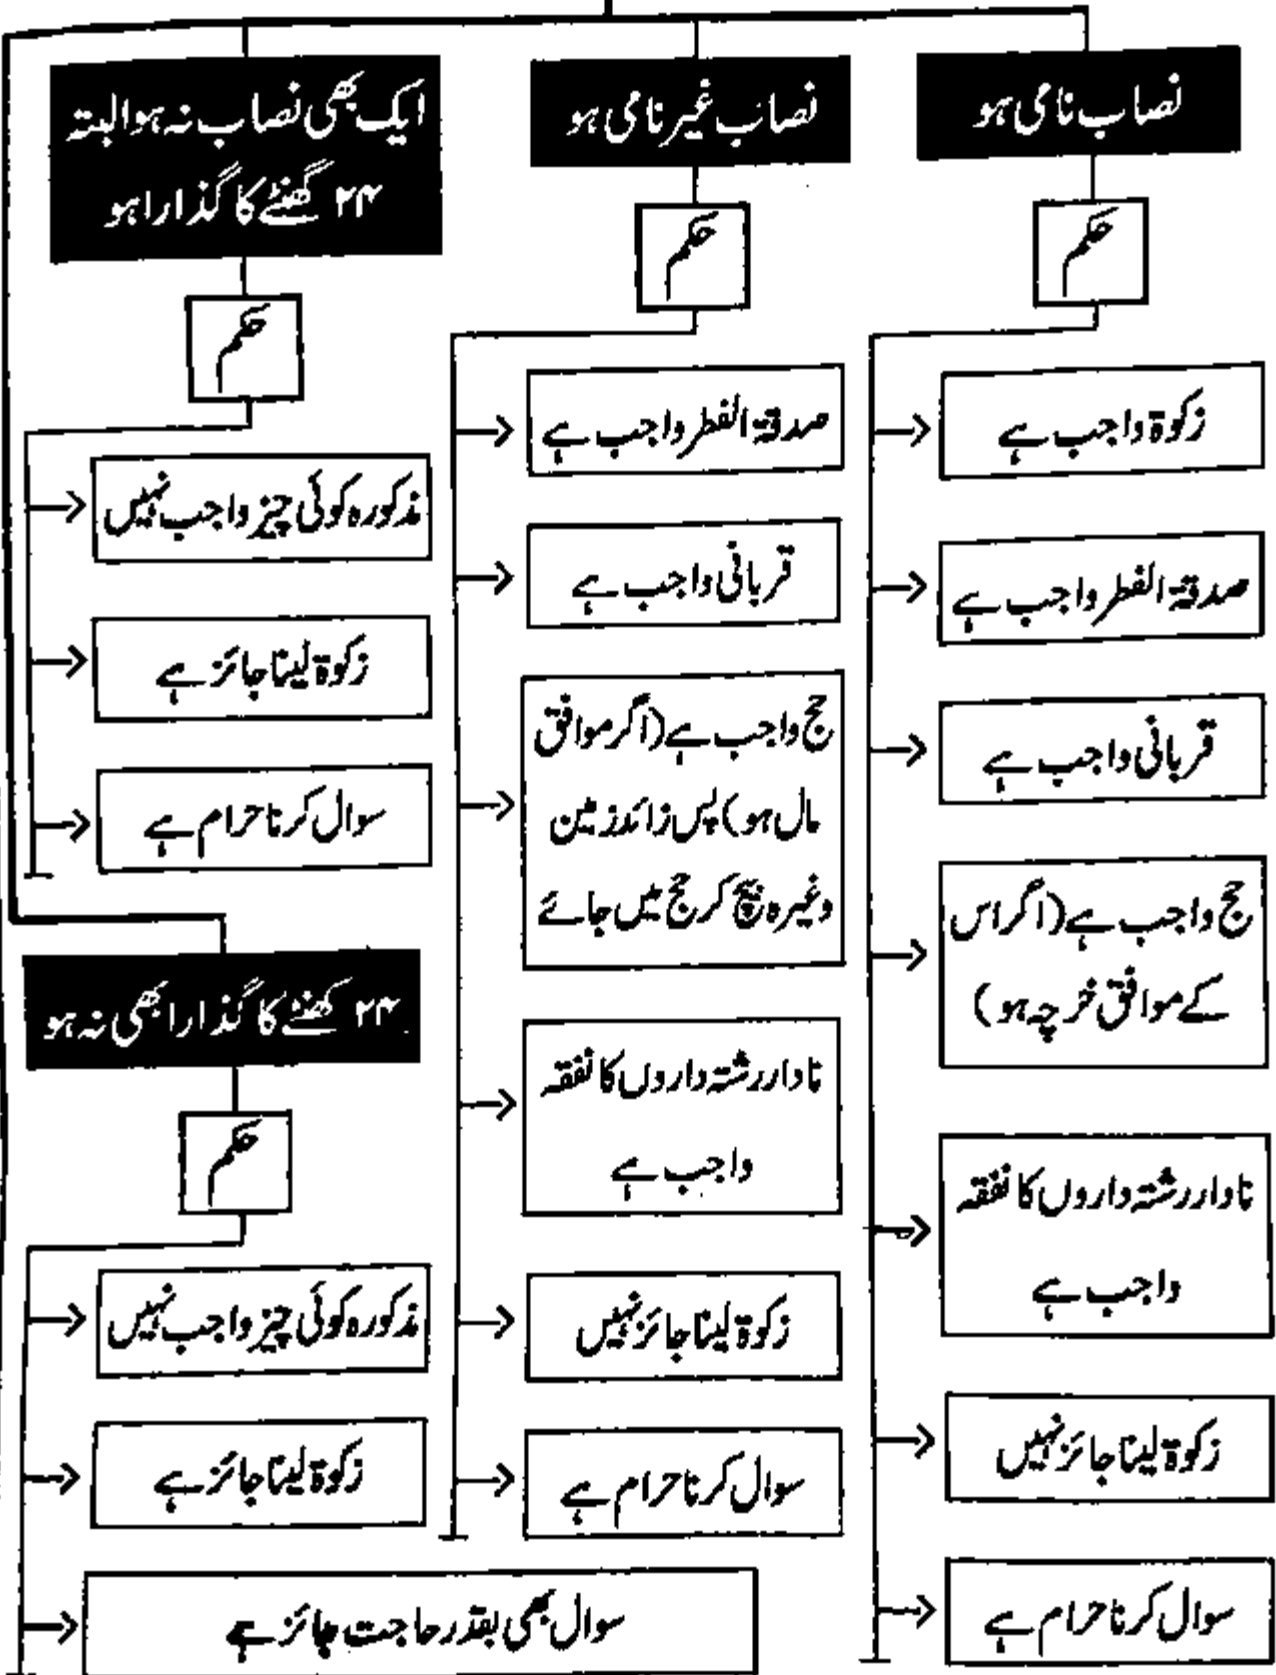 نصاب نامی ہو
حکم
زکوۃ واجب ہے
صدقۃ الفطر واجب ہے
قربانی واجب ہے
حج واجب ہے (اگر اس
کے موافق خرچہ ہو)
نادار رشتہ داروں کا نفقہ
واجب ہے
زکوۃ لینا جائز نہیں
سوال کرنا حرام ہے
نصاب غیر نامی ہو
حکم
صدقۃ الفطر واجب ہے
قربانی واجب ہے
حج واجب ہے (اگر موافق
مال ہو) پس زائد زمین
وغیرہ بیچ کر حج میں جائے
نادار رشتہ داروں کا نفقہ
واجب ہے
زکوۃ لینا جائز نہیں
سوال کرنا حرام ہے
ایک بھی نصاب نہ ہو البتہ
۲۴ گھنٹے کا گذارا ہو
حکم
مذکورہ کوئی چیز واجب نہیں
زکوۃ لینا جائز ہے
سوال کرنا حرام ہے
۲۴ گھنٹے کا گذارا بھی نہ ہو
حکم
مذکورہ کوئی چیز واجب نہیں
زکوۃ لینا جائز ہے
سوال بھی بقدر حاجت جائز ہے